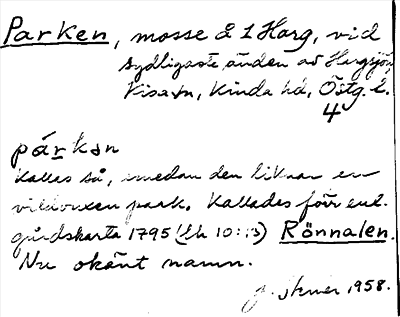 Parken, mosse å 1 Harg, vid
sydligaste änden av Hargsjön
Kisa sn, Kinda hd, Östg. l.
4
párkən
Kallas så, emedan den liknar en
vildvuxen park. Kallades förr enl.
gårdskarta 1795 (Lh 10:13) Rönnalen.
Nu okänt namn.
1958.